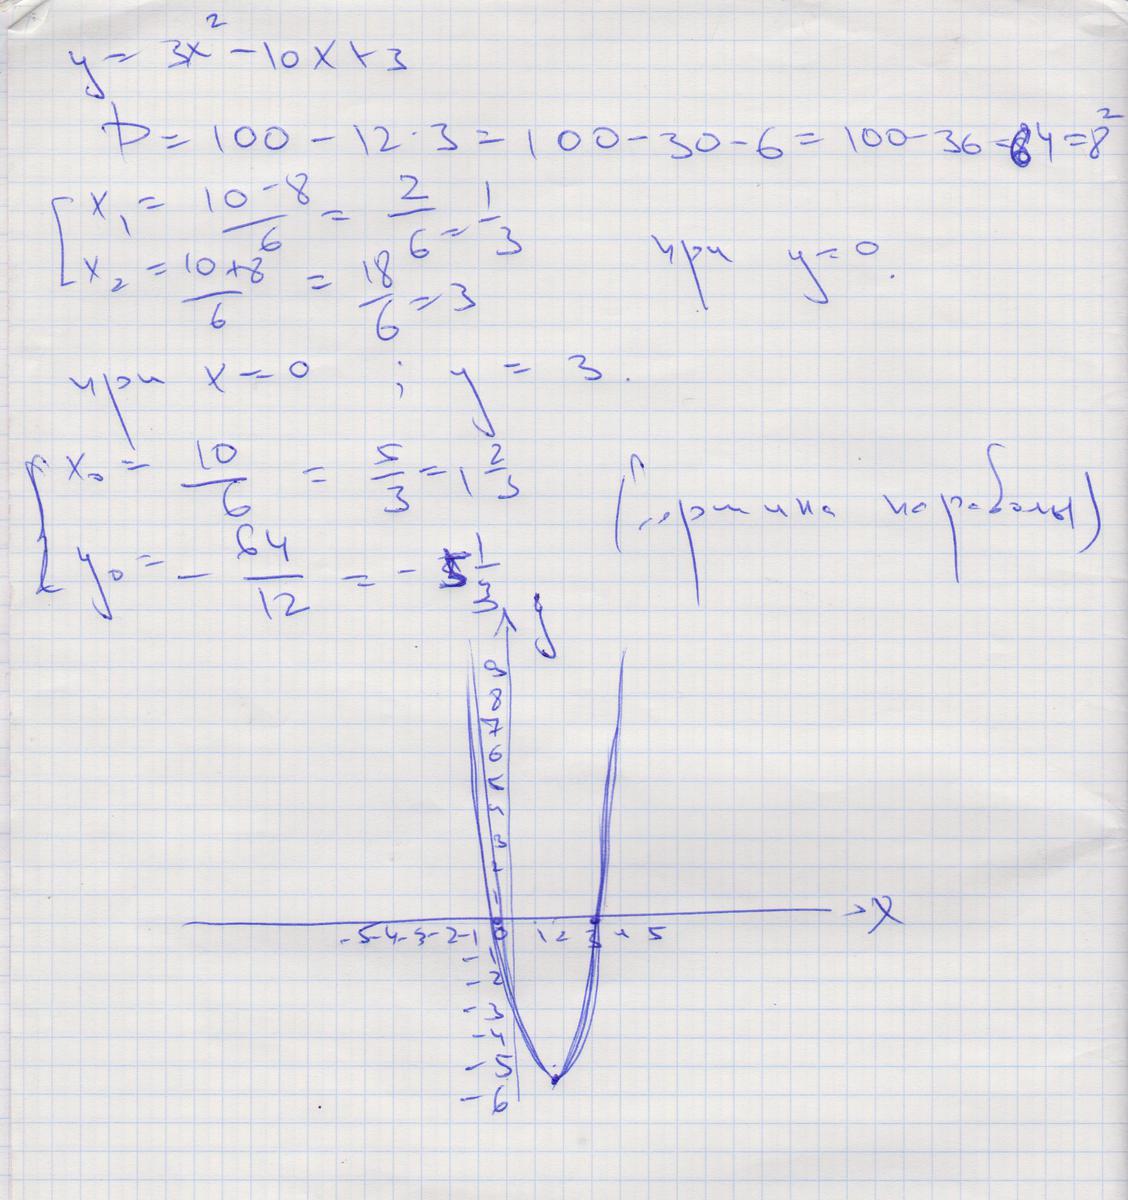 y = 3x² - 10x + 3
D = 100 - 12 · 3 = 100 - 30 - 6 = 100 - 36 = 64 = 8²
x₁ = (10 - 8)/6 = 2/6 = 1/3
x₂ = (10 + 8)/6 = 18/6 = 3
при y = 0.
при x = 0 ; y = 3.
x₀ = 10/6 = 5/3 = 1 2/3
y₀ = - 64/12 = - 5 1/3
параболы)
y
9
8
7
6
5
3
x
-5 -4 -3 -2 -1 0 1 2 3 4 5
-2
-3
-4
-5
-6